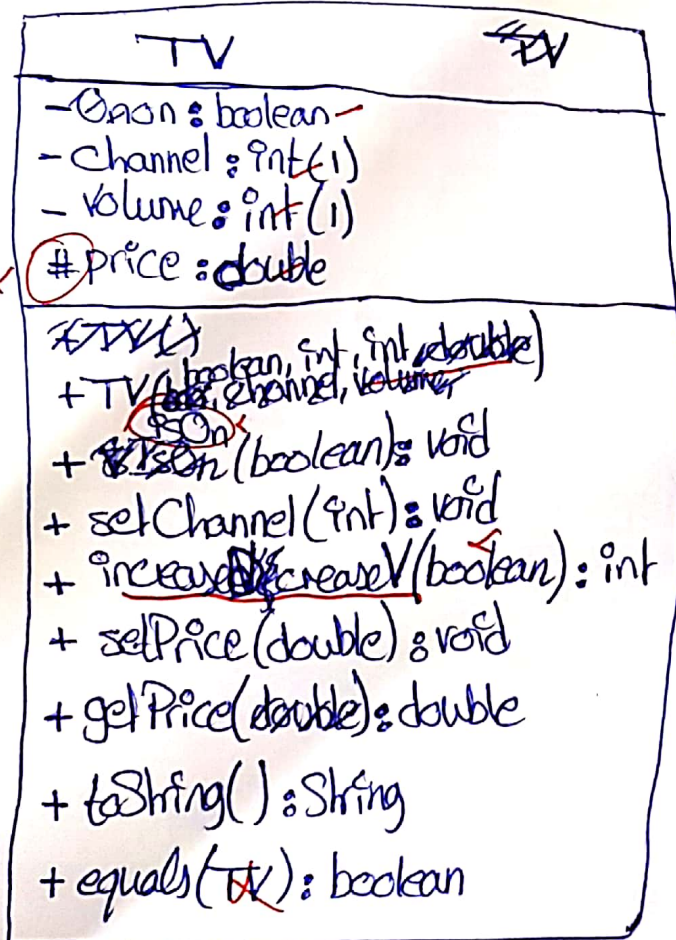 TV
- Onon : boolean
- Channel : int (1)
- Volume : int (1)
# price : double
boolean, int, int, double)
+ TV( channel, volume,
isOn
+ (boolean) : void
+ setChannel (int) : void
+ increaseDecreaseV (boolean) : int
+ setPrice (double) : void
+ getPrice (double) : double
+ toString() : String
+ equals (TV) : boolean